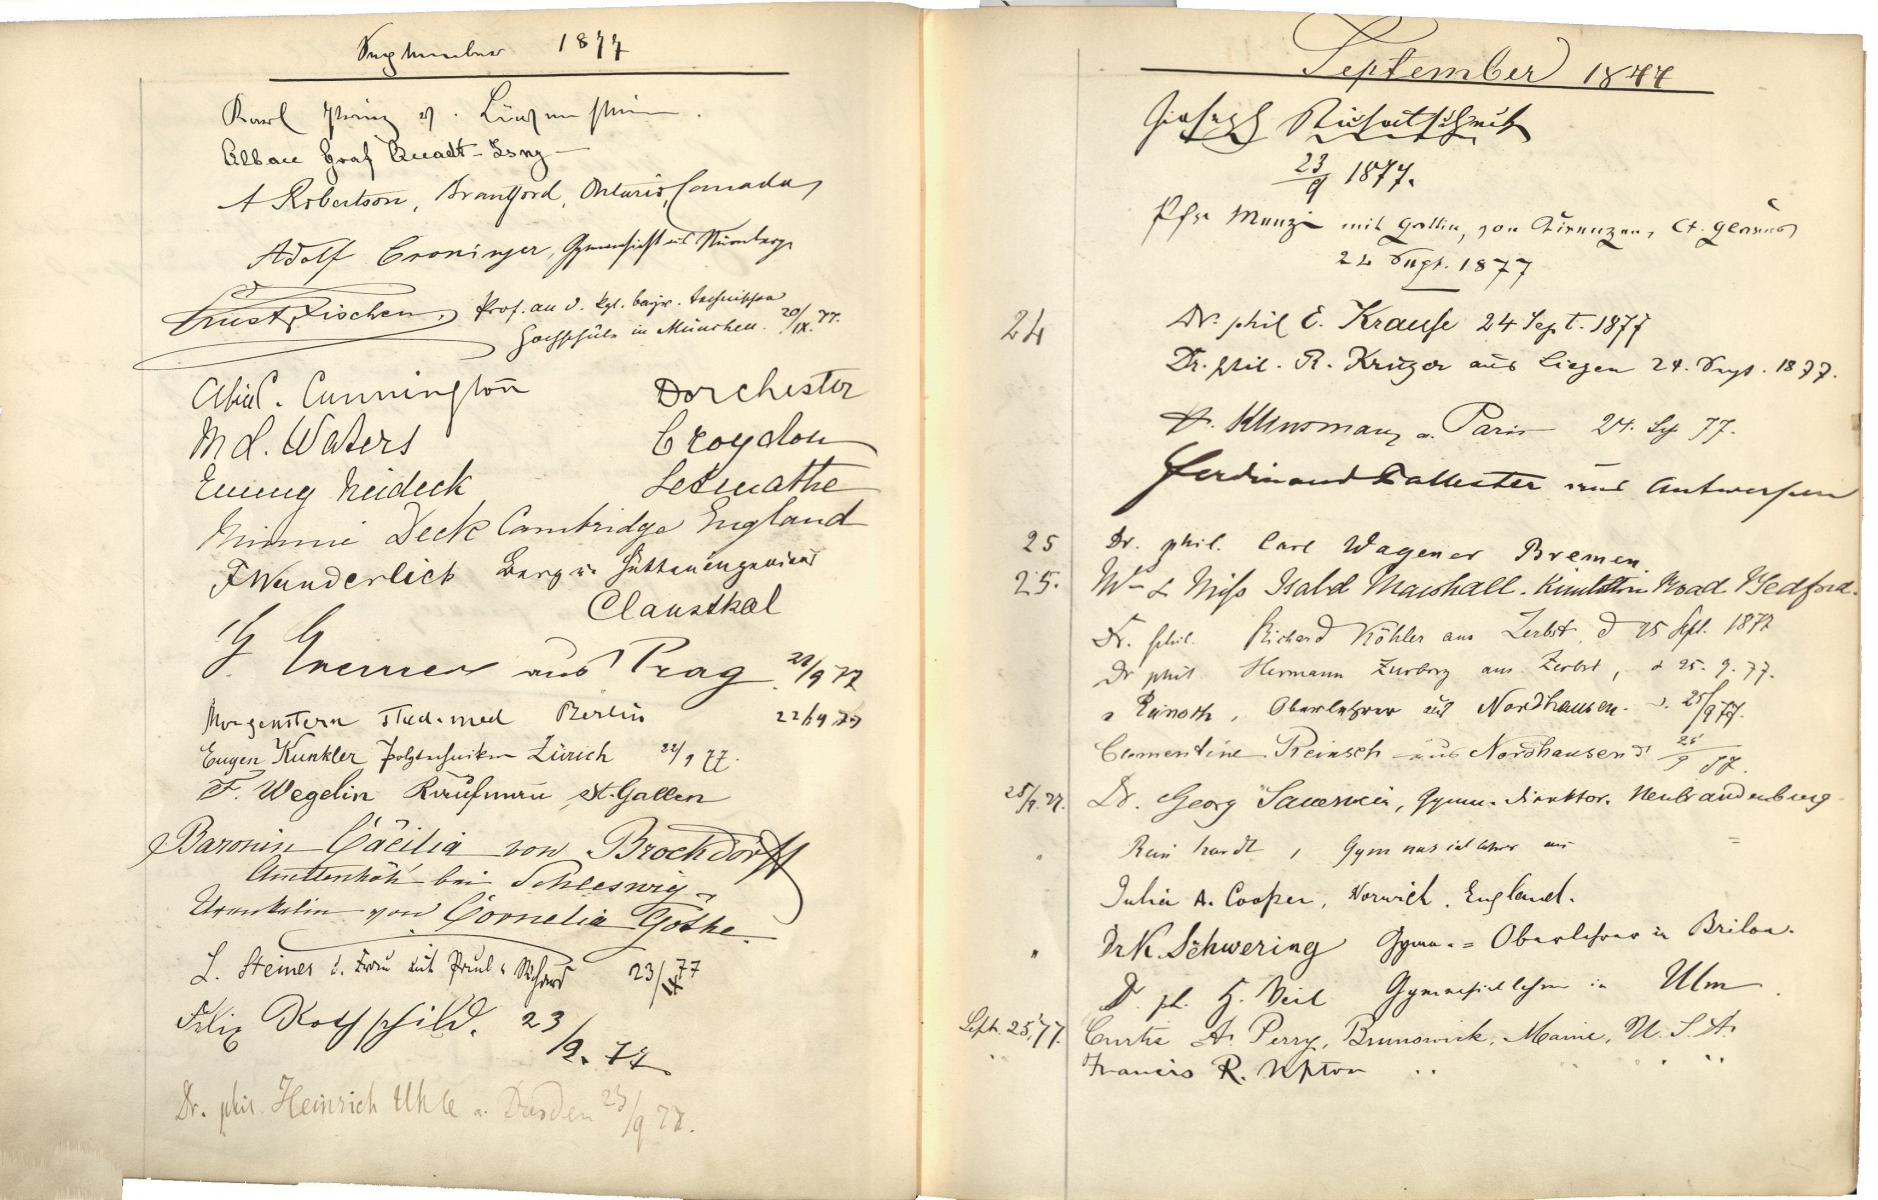 September 1877
Karl Prinz v.
Alban Graf Quadt-Isny
A Robertson, Brantford, Ontario, Canada
Adolf Croninger, Nürnberg
Ernst Fischer, Prof. an d. kgl. bayr. technischen
Hochschule in München. 20/IX. 77.
Cunnington Dorchester
M d. Waters Croydon
Emmy Neideck Letmathe
Minnie Deck Cambridge England
F Wunderlich Berg u. Hütteningenieur
Clausthal
aus Prag 22/9 77
Morgenstern stud. med Berlin 22/9 77
Eugen Kunkler Polytechniker Zürich 22/9 77.
F. Wegelin Kaufmann St. Gallen
Baronin Cäcilia von Brockdorff
Annettenhöh bei Schleswig
Urenkelin von Cornelia Göthe.
L. Steiner u. Frau mit 23/IX 77
Felix Rothschild. 23/9. 77
Dr. phil. Heinrich Uhle a. Dresden 23/9 77.
September 1877
Joseph
23/9 1877.
Pfr Menzi mit Gattin, von Ct. Glarus
24 Sept. 1877
24 Dr. phil E. Krause 24 Sept. 1877
Dr. phil. R. Krüger aus 24. Sept. 1877.
a. Paris 24. Sep 77.
Ferdinand aus Antwerpen
25 Dr. phil. Carl Wagener Bremen.
25. & Miss Isabel Marshall. Kimbolton Road Bedford.
Dr. phil. Richard Köhler aus Zerbst, d 25 Sept. 1877
Dr phil. Hermann Zurborg aus Zerbst, d 25. 9. 77.
Oberlehrer aus Nordhausen. d. 25/9 77.
Clementine Reinsch aus Nordhausen d. 25/9 77.
25/9. 77. Dr. Georg Gymn. Direktor. Neubrandenburg
" Reinhardt, Gymnasiallehrer aus =
Julia A. Cooper, Norwich. England.
" Dr K. Schwering Gymn. = Oberlehrer in Brilon.
Dr ph. H. Veil Gymnasiallehrer in Ulm.
Sept. 25, 77. Curtis A. Perry, Brunswick, Maine, U. S. A.
" Francis R. Upton " " " "